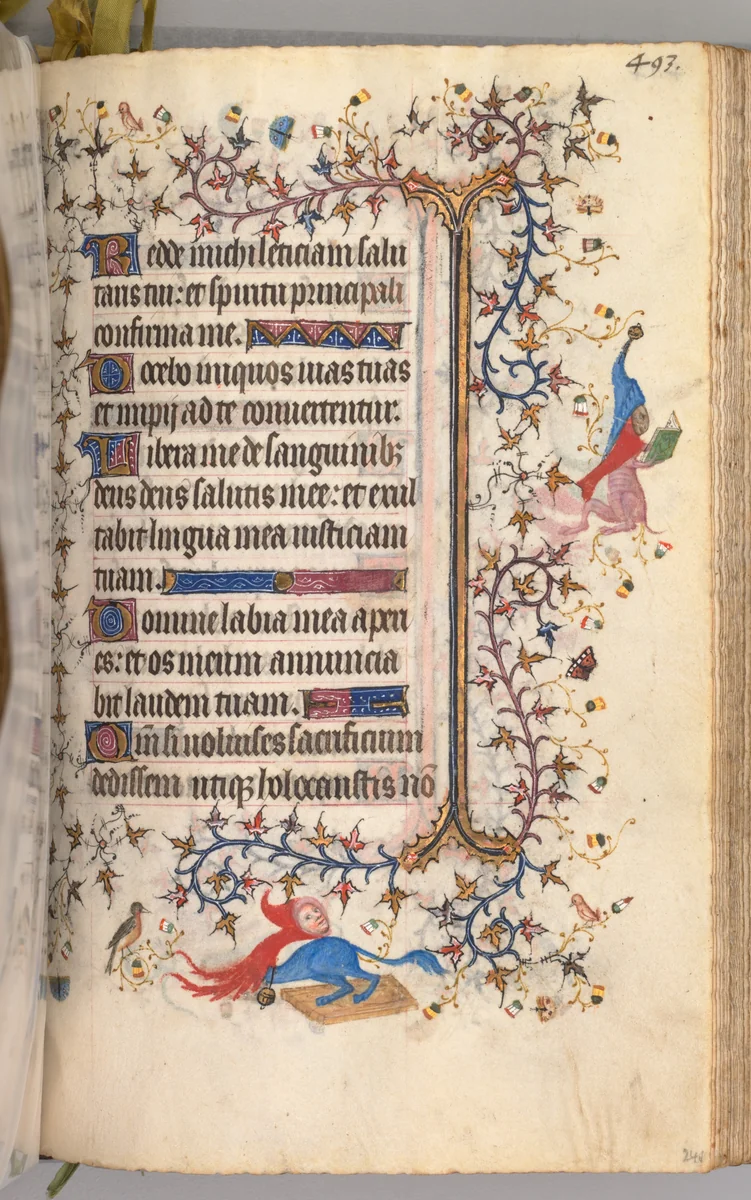 493.
Redde michi leticiam salu
taris tui: et spiritu principali
confirma me.
Docebo iniquos uias tuas
et impij ad te conuertentur.
Libera me de sanguinibꝫ
deus deus salutis mee: et exul
tabit lingua mea iusticiam
tuam.
Domine labia mea aperi
es: et os meum annuncia
bit laudem tuam.
Qm̄ si uoluisses sacrificium
dedissem utiqꝫ holocaustis nō